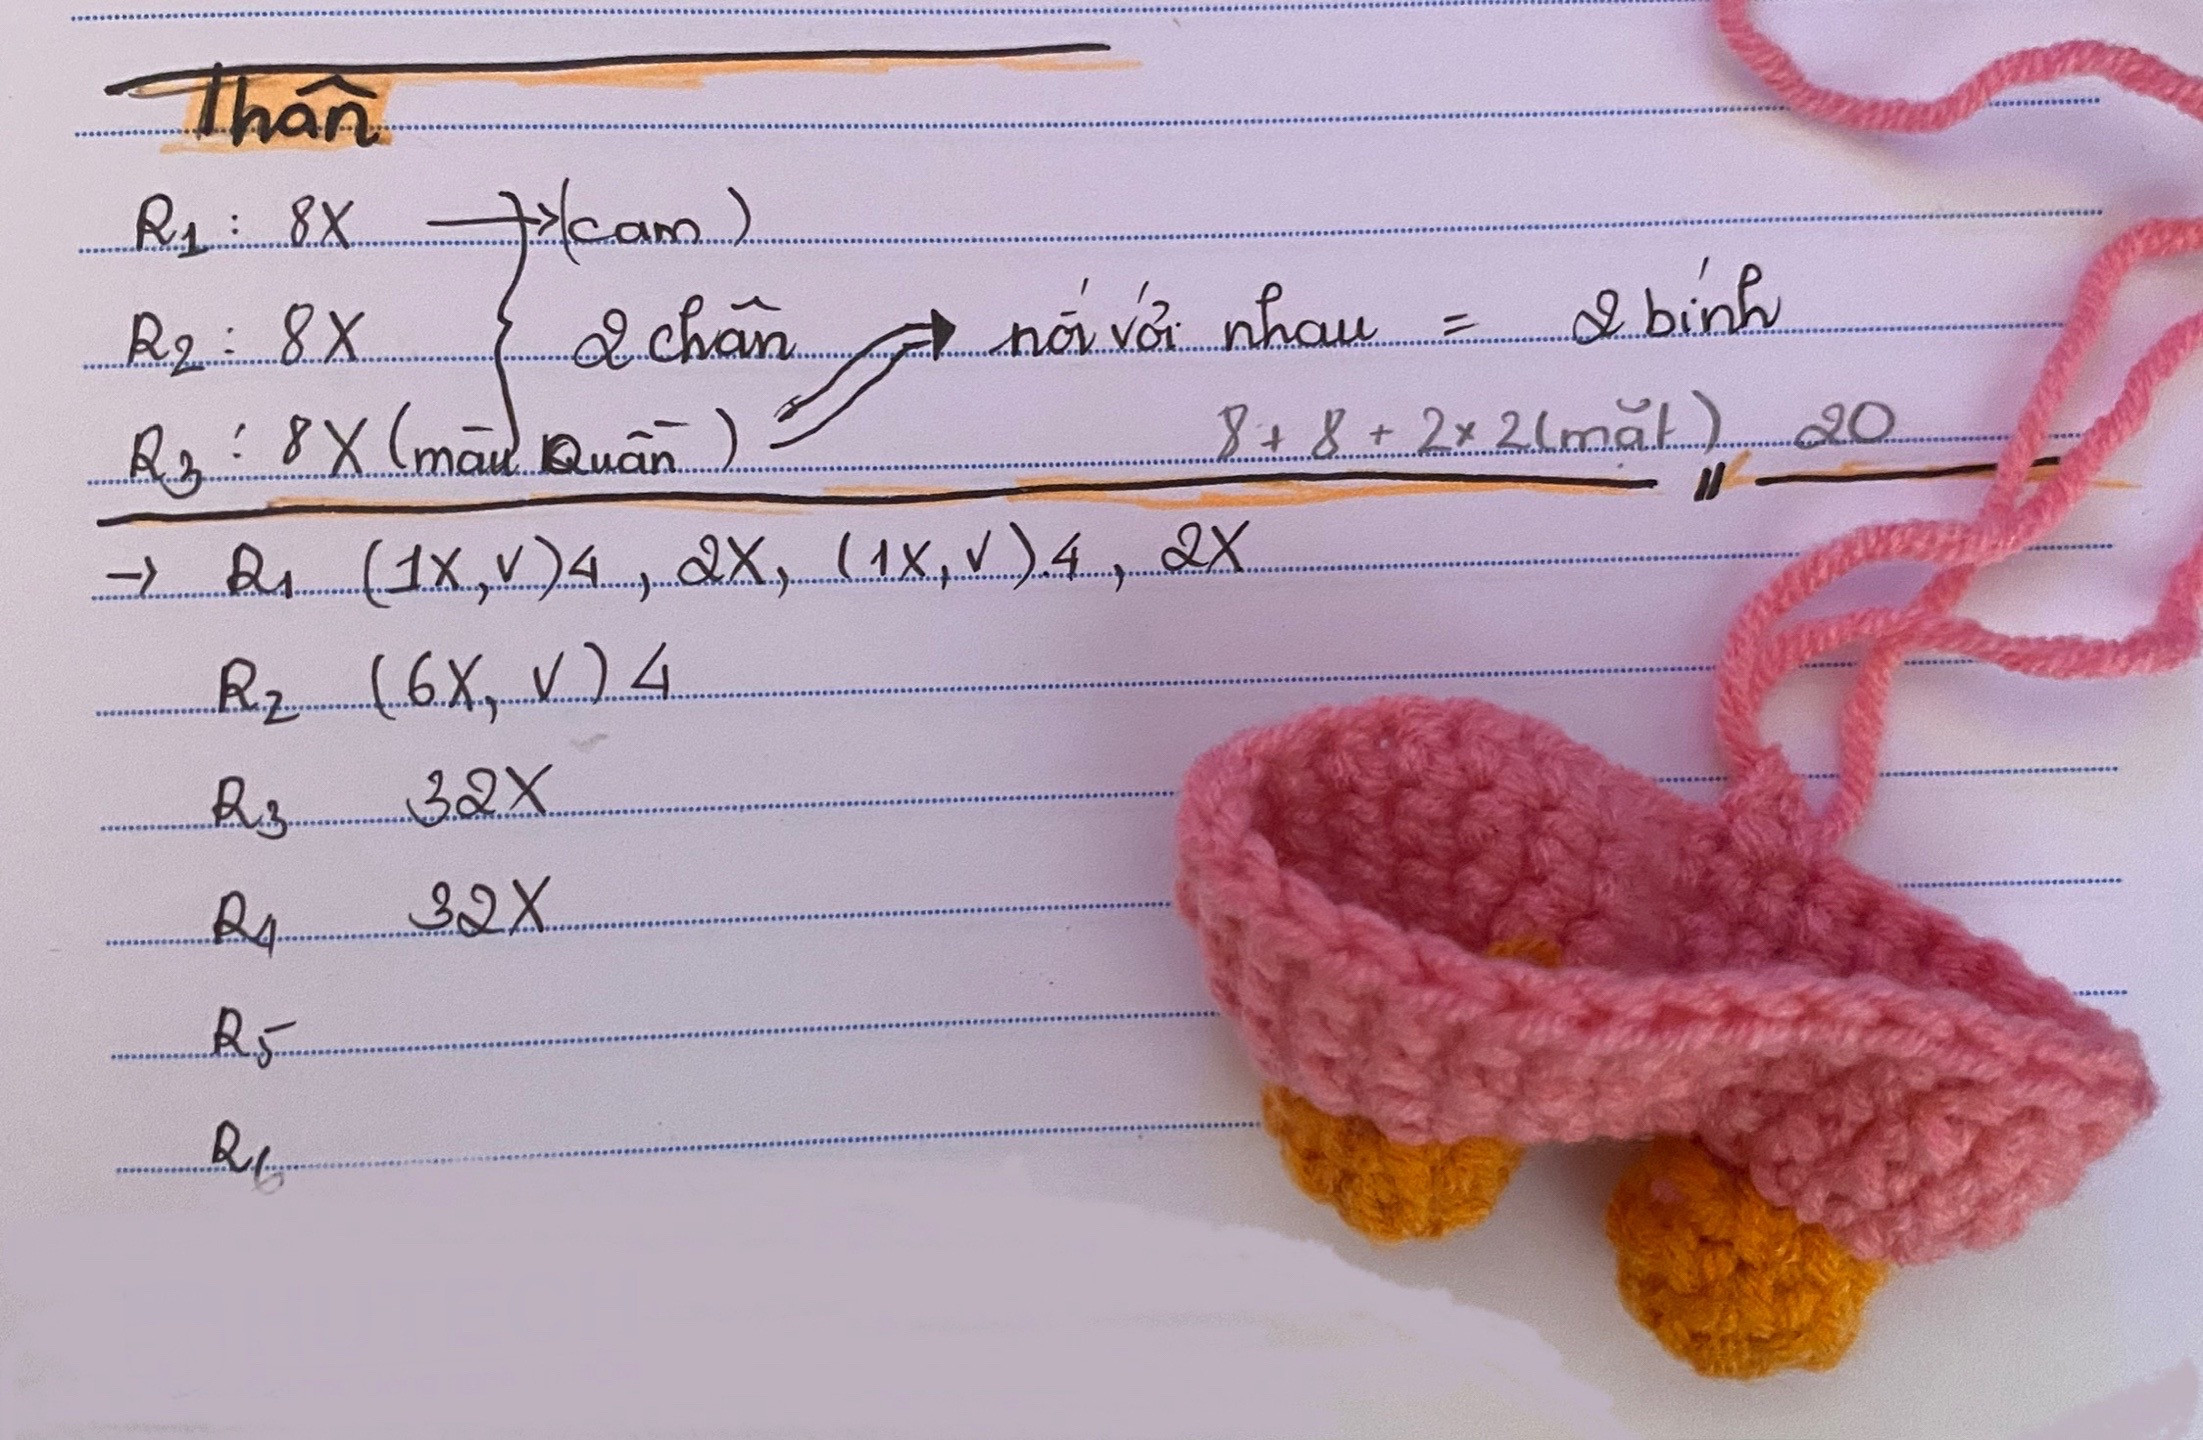 Thân
R1 : 8X → (cam)
R2 : 8X } 2 chân ⇒ nối với nhau = 2 bính
R3 : 8X (màu Quần)
8 + 8 + 2 x 2 (mắt) = 20
→ R1 (1X, V)4, 2X, (1X, V).4, 2X
R2 (6X, V)4
R3 32X
R4 32X
R5
R6